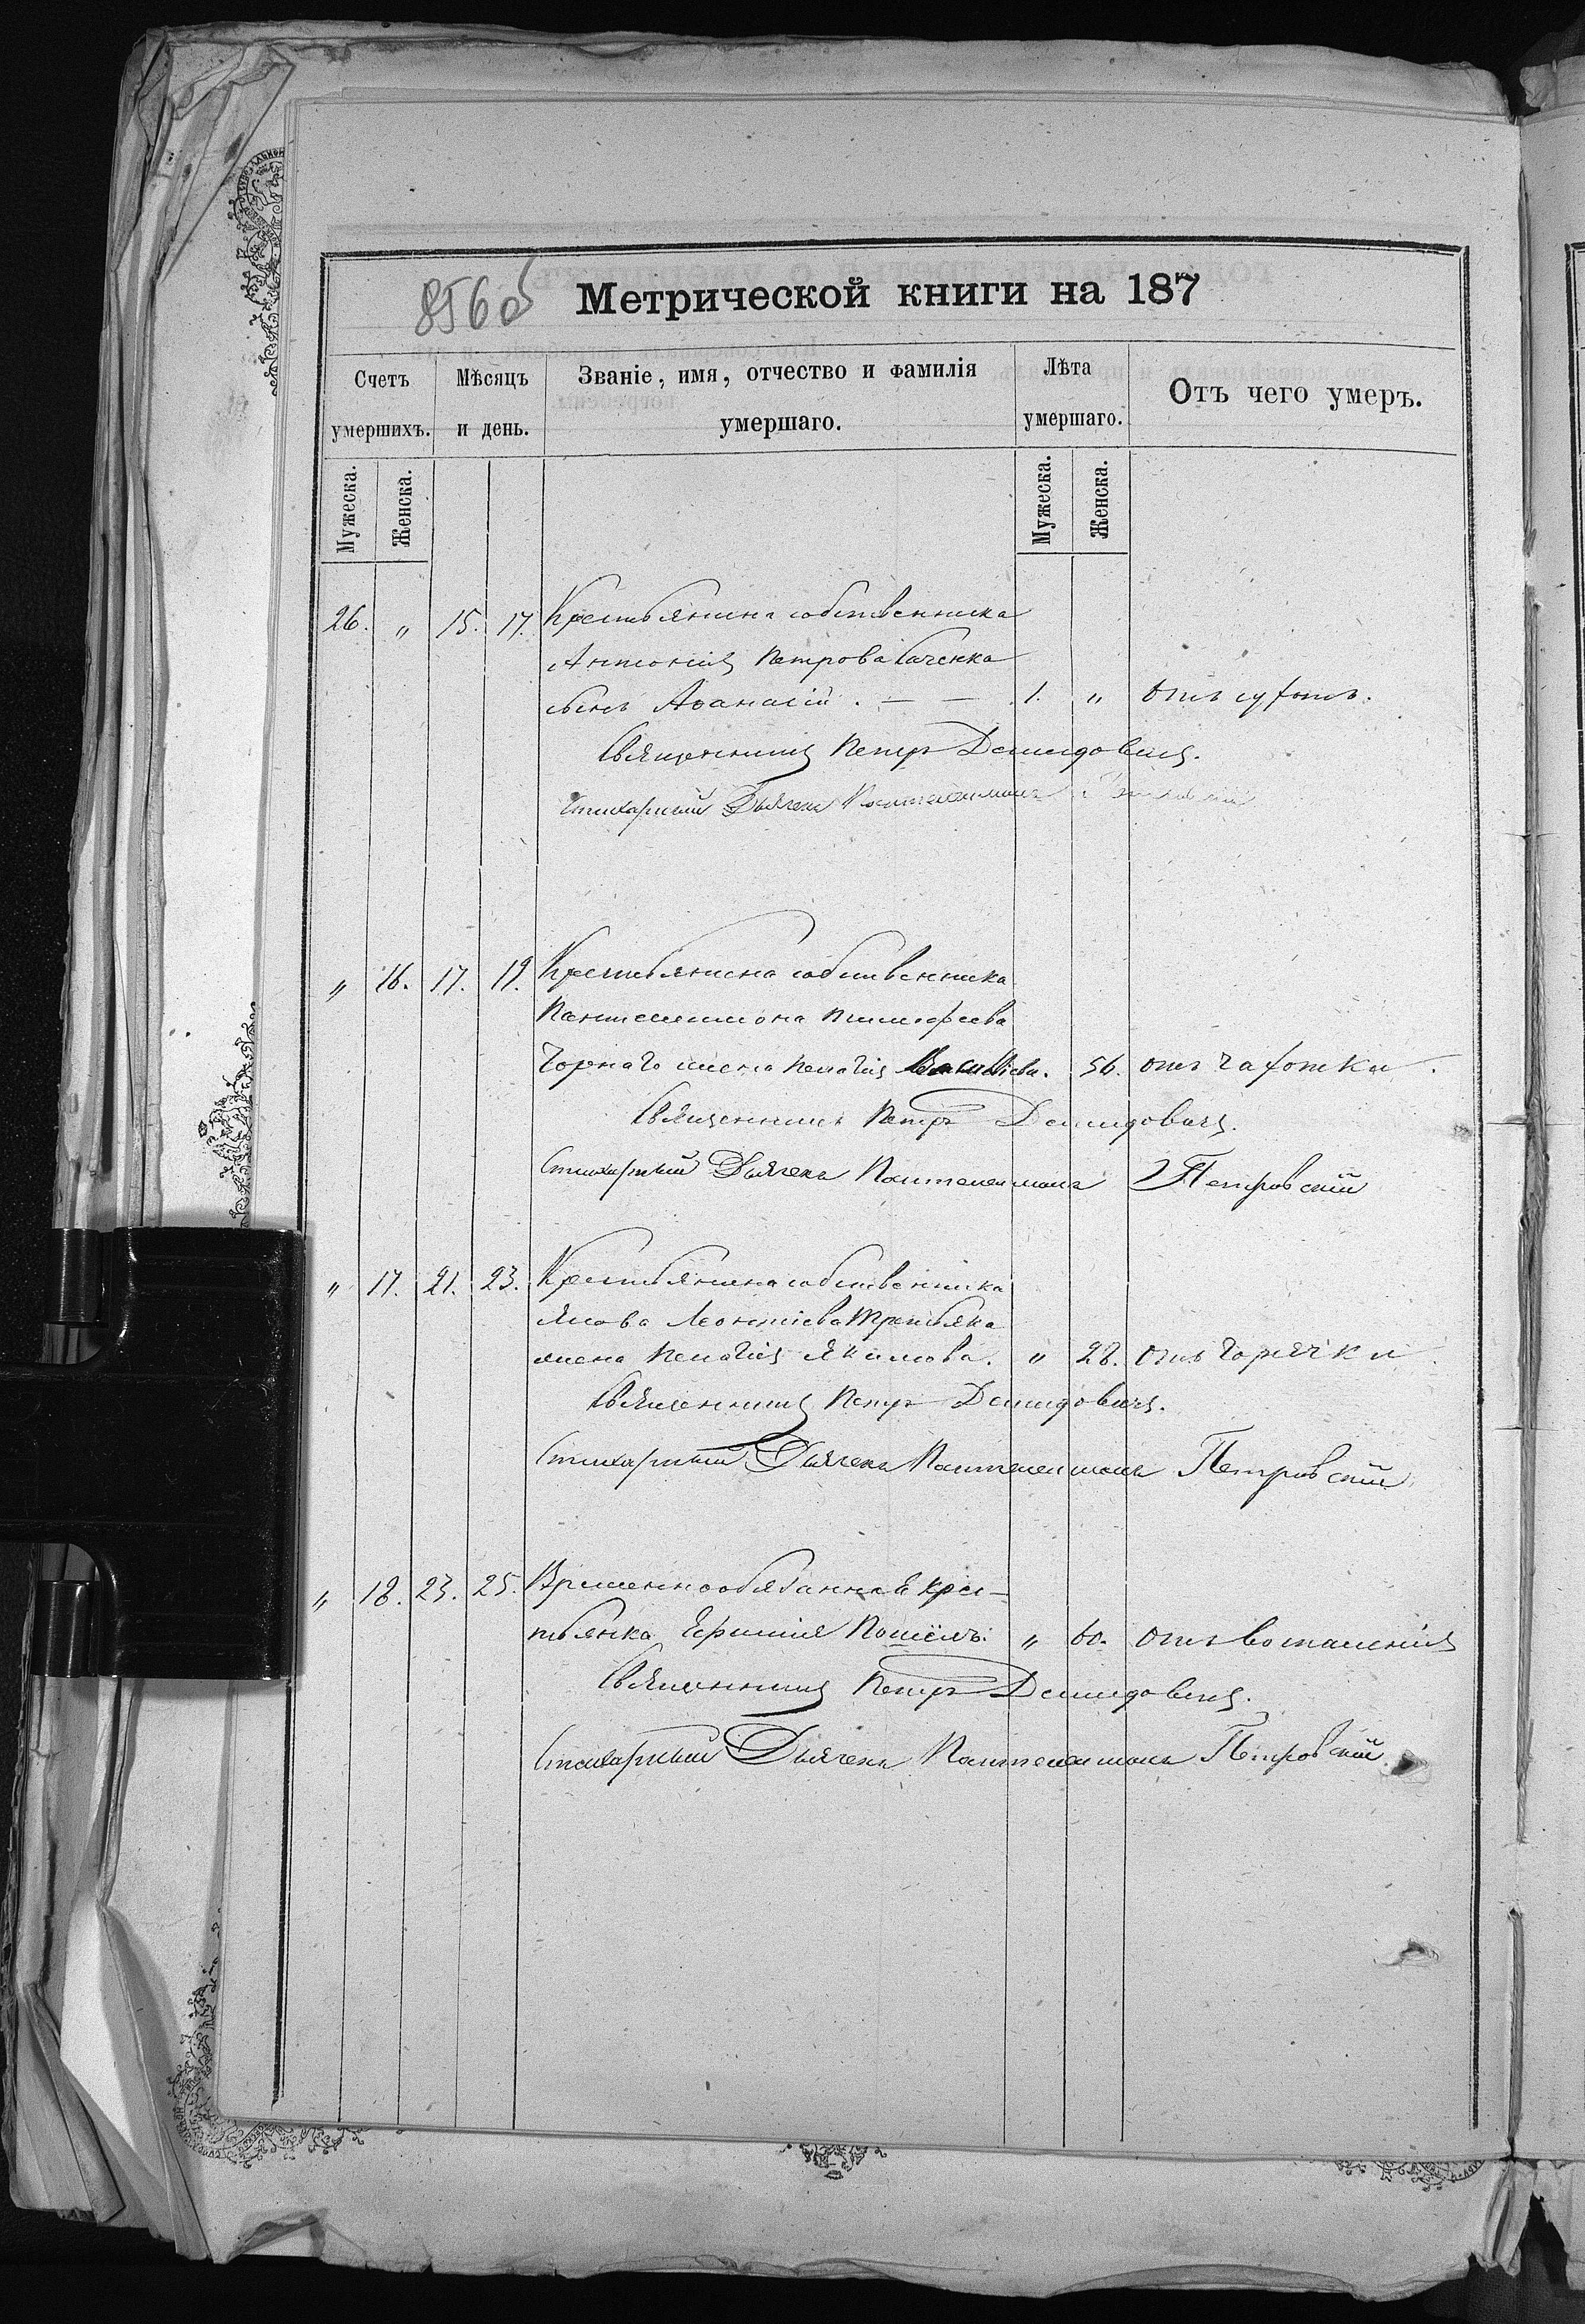 856об
Метрической книги на 187
Счетъ умершихъ. Мѣсяцъ и день. Званіе, имя, отчество и фамилія умершаго. Лѣта умершаго. Отъ чего умеръ.
Мужеска. Женска. Мужеска. Женска.
26. " 15. 17. Крестьянина собственника
Антонія Петрова
сынъ Аѳанасій. — — 1. " Отъ сухотъ.
Священникъ Петръ Демидовичъ.
Стихарный Дьячекъ Пантелеимонъ Петровскій
" 16. 17. 19. Крестьянина собственника
Пантелеимона Тимофеева
Чорнаго жена Пелагія Васильева. 56. отъ чахотки.
Священникъ Петръ Демидовичъ.
Стихарный Дьячекъ Пантелеимонъ Петровскій
" 17. 21. 23. Крестьянина собственника
Якова Леонтіева Третьяка
жена Пелагія Якимова. " 28. Отъ горячки.
Священникъ Петръ Демидовичъ.
Стихарный Дьячекъ Пантелеимонъ Петровскій
" 18. 23. 25. Временнообязанная крес-
тьянка Ефимія " 60. Отъ воспаленія
Священникъ Петръ Демидовичъ.
Стихарный Дьячекъ Пантелеимонъ Петровскій.